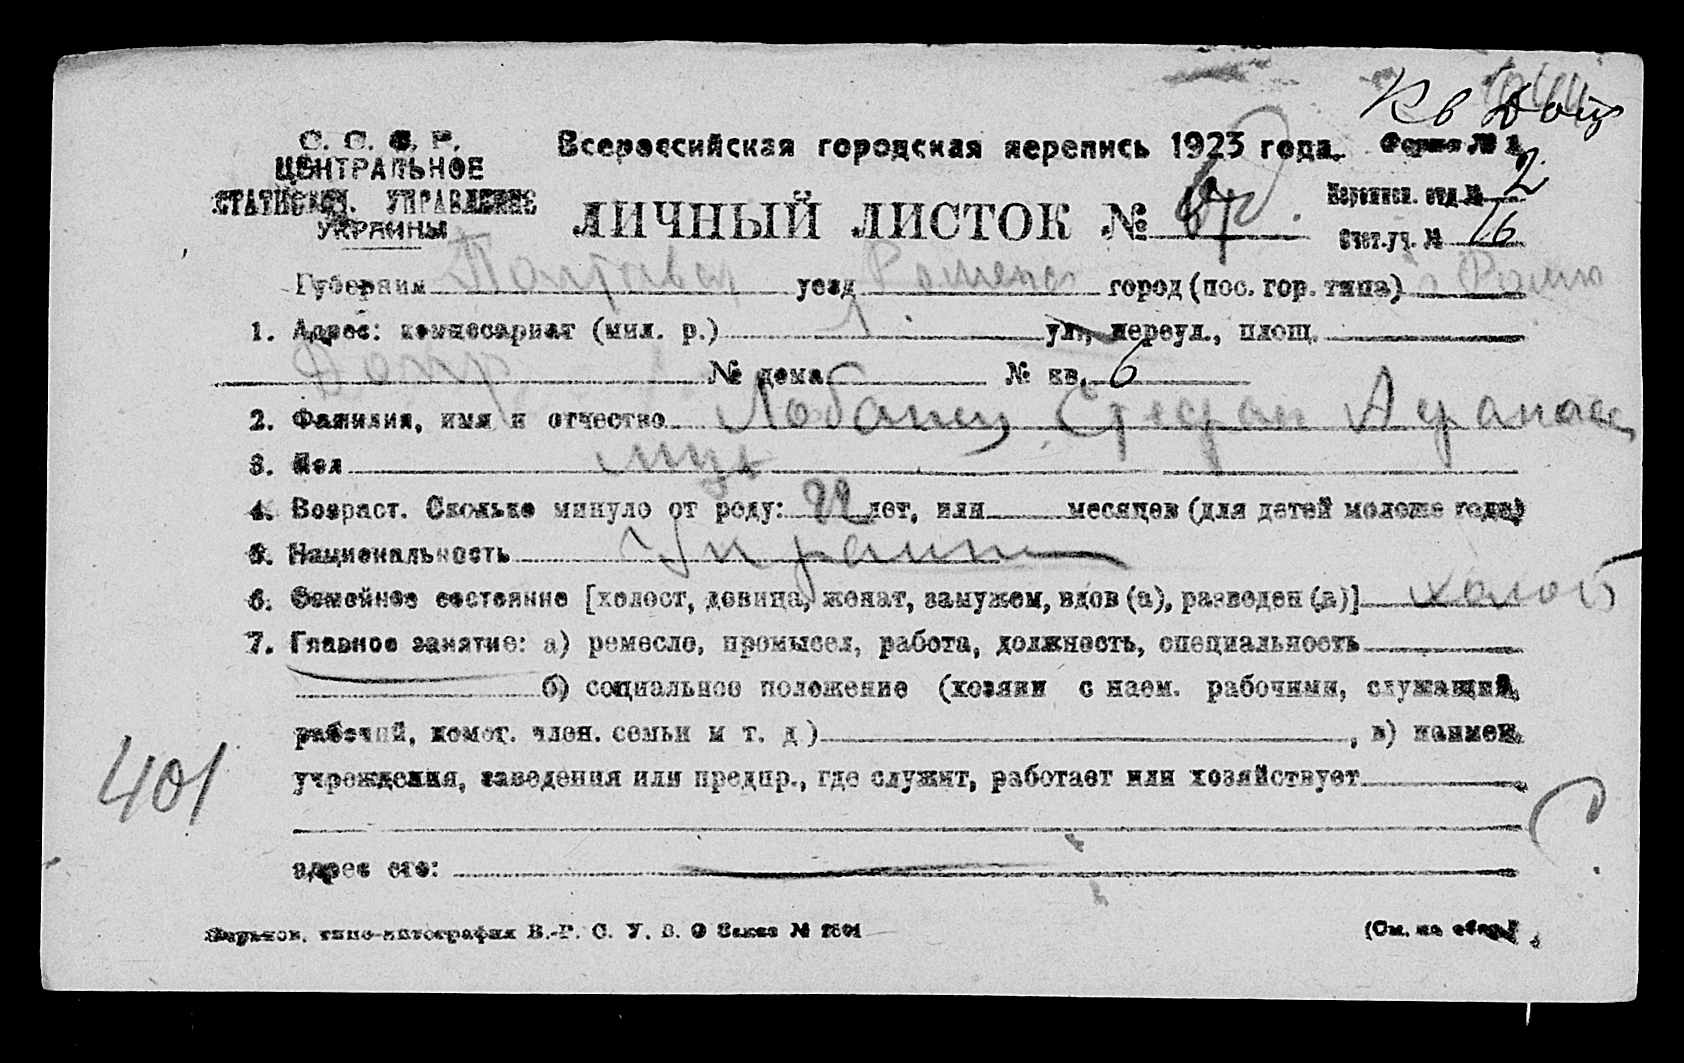 С. С. С. Р.
ЦЕНТРАЛЬНОЕ
СТАТИСТИЧ. УПРАВЛЕНИЕ
УКРАИНЫ
Всероссийская городская перепись 1923 года.
Форма № 1.
ЛИЧНЫЙ ЛИСТОК №
Переписн. отд. № 2
Счет. уч. № 16
Губерния Полтавск уезд Роменс город (пос. гор. типа)
1. Адрес: комиссариат (мил. р.) 1. ул., переул., площ.
Допр № дома № кв. 6
2. Фамилия, имя и отчество Лобанец Стефан Афанас
3. Пол муж
4. Возраст. Сколько минуло от роду: 22 лет, или месяцев (для детей моложе года)
5. Национальность Украин
6. Семейное состояние [холост, девица, женат, замужем, вдов (а), разведен (а)] холос
7. Главное занятие: а) ремесло, промысел, работа, должность, специальность
б) социальное положение (хозяин с наем. рабочими, служащий,
рабочий, помог. член. семьи и т. д.) , в) наимен.
401
учреждения, заведения или предпр., где служит, работает или хозяйствует
адрес его:
Харьков, типо-литография В.-Р. С. У. В. О Заказ №
(См. на обор.)